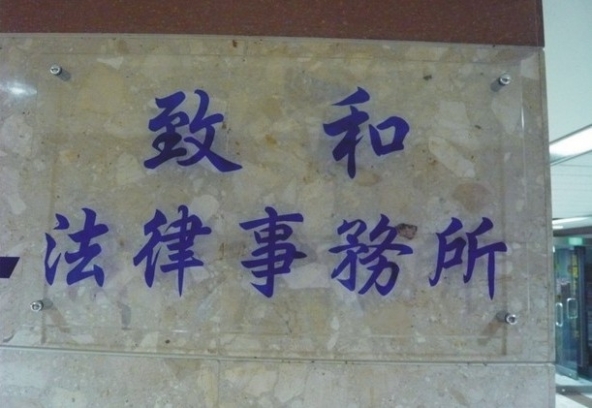 致和
法律事務所